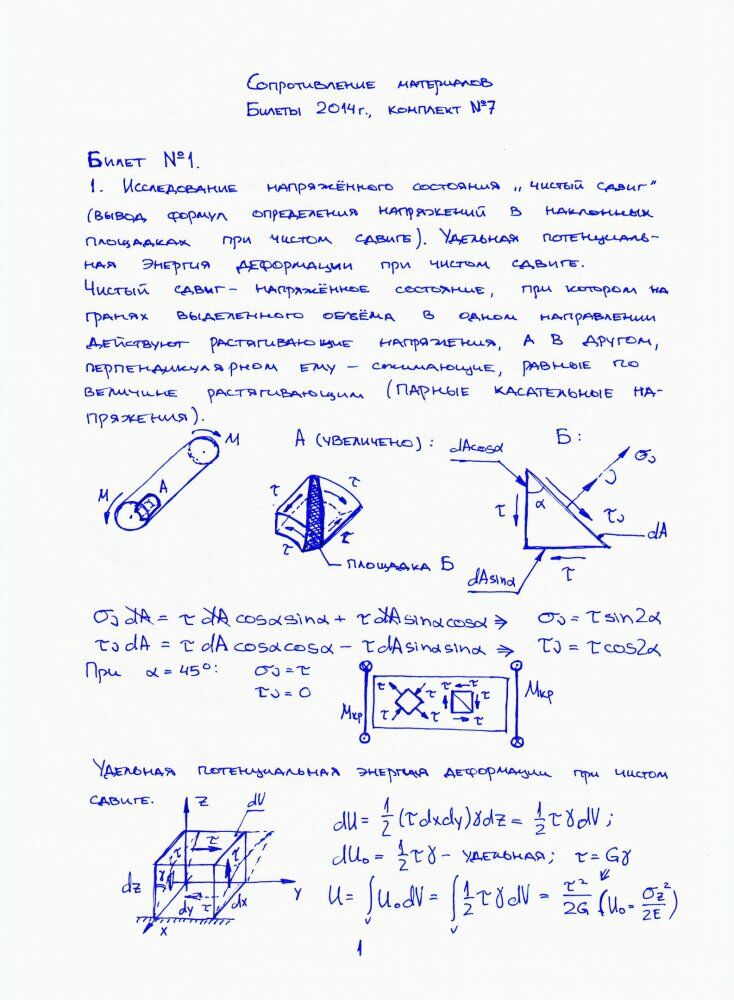 Сопротивление материалов
Билеты 2014г., комплект №7
Билет №1.
1. Исследование напряжённого состояния „чистый сдвиг"
(вывод формул определения напряжений в наклонных
площадках при чистом сдвиге). Удельная потенциаль-
ная энергия деформации при чистом сдвиге.
Чистый сдвиг – напряжённое состояние, при котором на
гранях выделенного объёма в одном направлении
действуют растягивающие напряжения, а в другом,
перпендикулярном ему – сжимающие, равные по
величине растягивающим (парные касательные на-
пряжения).
M
M
A
A (увеличено):
τ
τ
τ
τ
площадка Б
Б:
dAcosα
συ
υ
α
τ
τυ
dA
dAsinα
τ
συ dA = τ dA cosα sinα + τ dA sinα cosα ⇒ συ = τ sin2α
τυ dA = τ dA cosα cosα – τ dA sinα sinα ⇒ τυ = τ cos2α
При α = 45°: συ = τ
τυ = 0
Mкр
τ τ τ τ
τ τ τ τ
Mкр
Удельная потенциальная энергия деформации при чистом
сдвиге.
z
dV
τ
τ
γ
τ
dz
dy
τ
dx
y
x
dU = 1/2 (τ dxdy) γdz = 1/2 τγdV;
dU₀ = 1/2 τγ – удельная; τ = Gγ
U = ∫v U₀dV = ∫v 1/2 τγdV = τ²/2G (U₀ = σz²/2E)
1